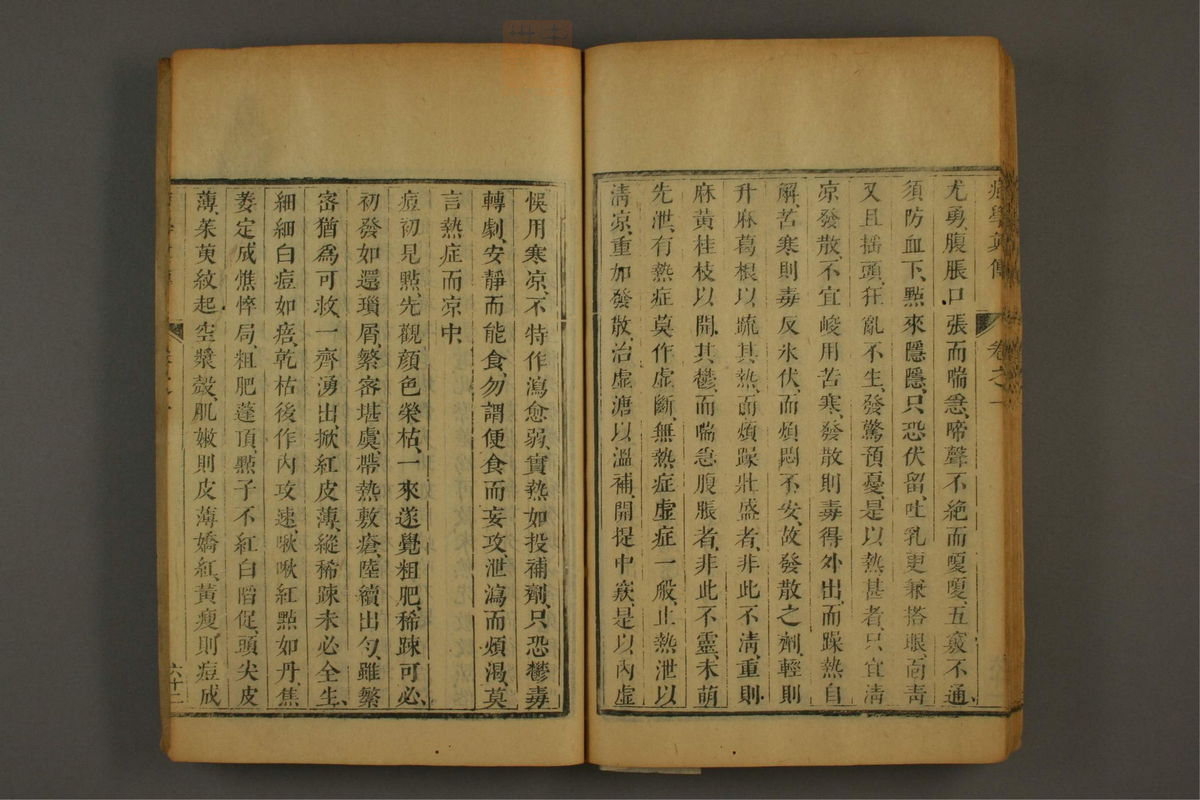 痘學眞傳 卷之一
尤勇、腹脹口張而喘急、啼聲不絶而嗄嗄、五竅不通
須防血下、點來隱隱、只恐伏留、吐乳更兼搭眼、面青
又且搖頭、狂亂不生、發驚預憂、是以熱甚者、只宜清
凉發散、不宜峻用苦寒、發散則毒得外出、而躁熱自
解、苦寒則毒反氷伏、而煩悶不安、故發散之劑、輕則
升麻葛根、以疏其熱、而煩躁壯盛者、非此不清、重則
麻黃桂枝、以開其鬱、而喘急腹脹者、非此不靈、未萌
先泄、有熱症莫作虛斷、無熱症虛症一般、止熱泄以
清凉、重加發散、治虛溏以溫補、開提中痰、是以內虛
悞用寒凉、不特作瀉愈弱、實熱如投補劑、只恐鬱毒
轉劇、安靜而能食、勿謂便食而妄攻、泄瀉而煩渴、莫
言熱症而凉中、
痘初見點、先觀顏色榮枯、一來遂覺粗肥、稀踈可必、
初發如還瑣屑、繁密堪虞、帶熱敷瘡、陸續出勻、雖繁
密猶爲可救、一齊湧出、掀紅皮薄、縱稀踈未必全生、
細細白痘如㾦、乾枯後作內攻速、啾啾紅點如丹、焦
萎定成憔悴局、粗肥蓬頂、點子不紅白㿠促、頭尖皮
薄、茱萸紋起空漿殼、肌嫩則皮薄嬌紅、黃瘦則痘成
六十二